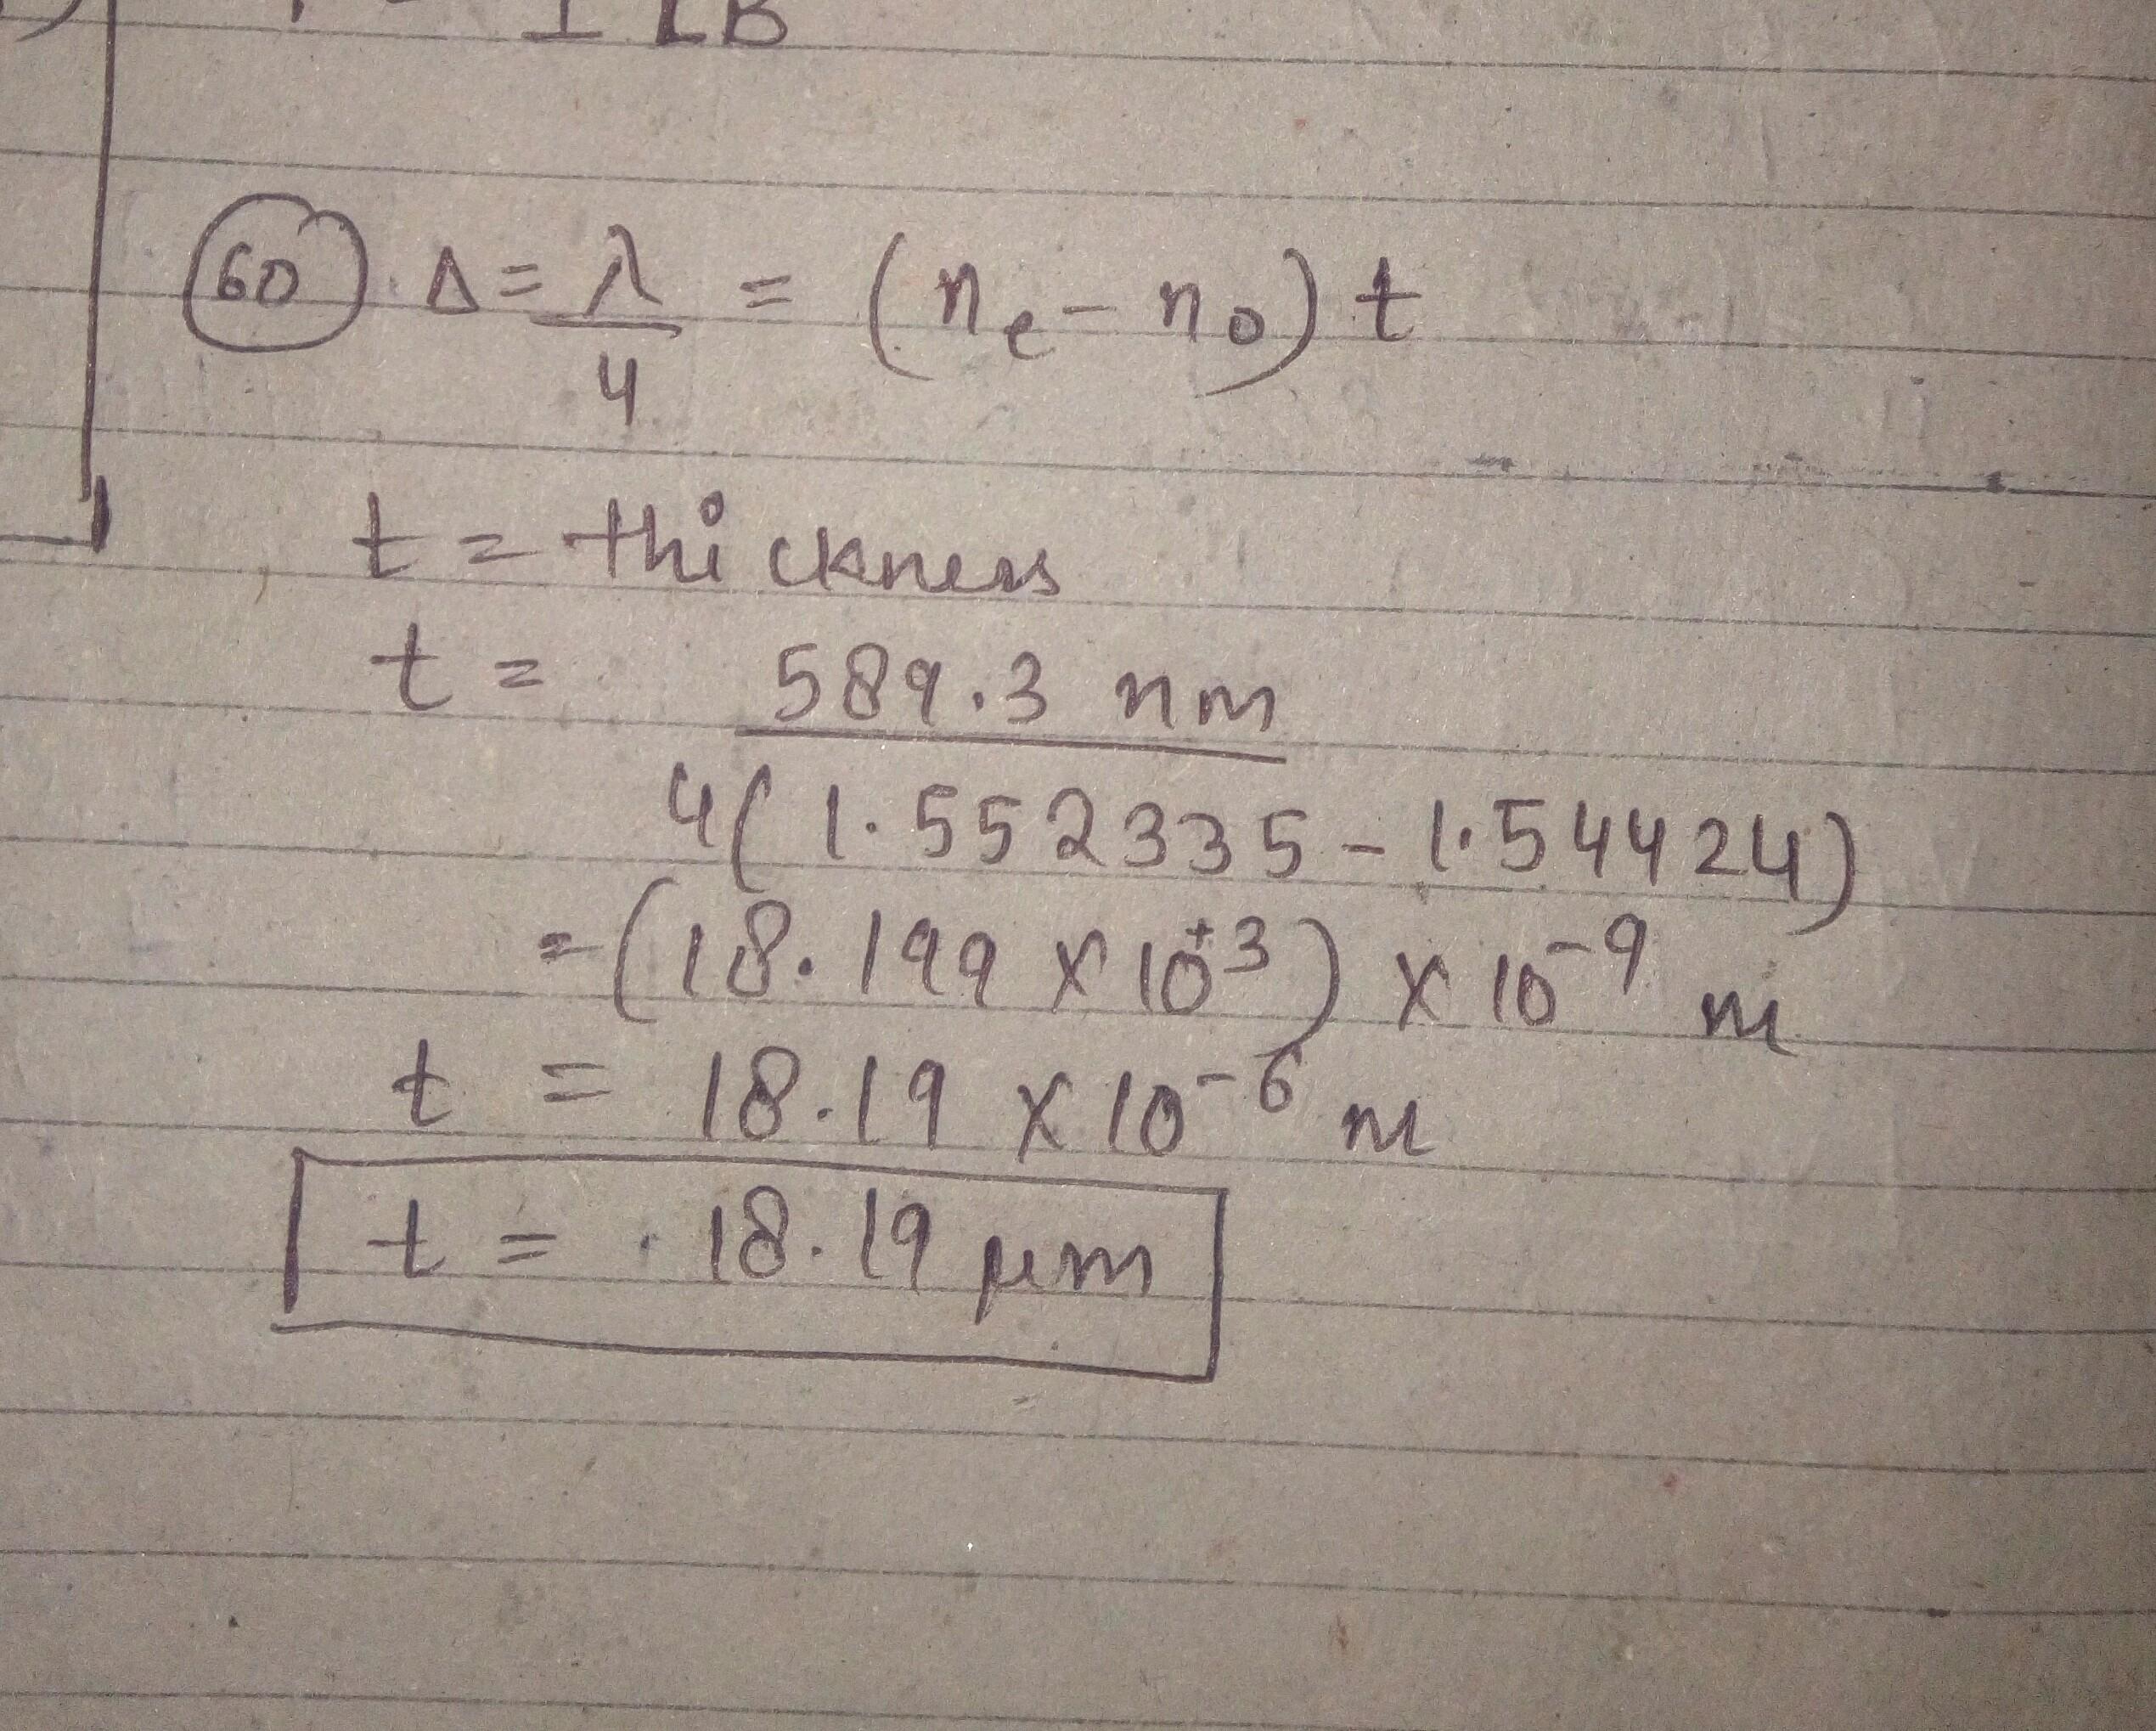 ILB
60 Δ = λ/4 = (ne - no) t
t = thickness
t = 589.3 nm
4(1.552335 - 1.54424)
= (18.199 × 10^+3) × 10^-9 m
t = 18.19 × 10^-6 m
t = 18.19 μm